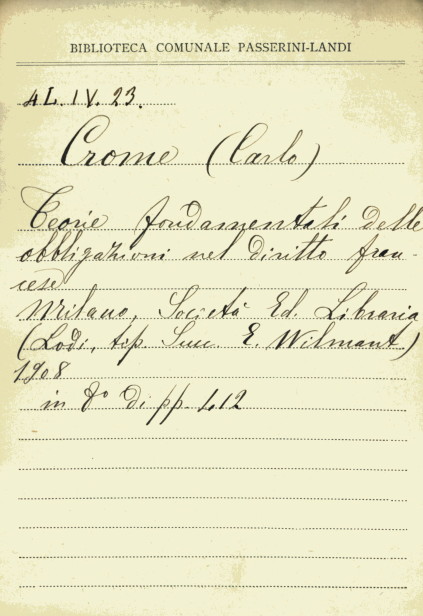 BIBLIOTECA COMUNALE PASSERINI-LANDI
4L.IV.23.
Crome (Carlo)
Teorie fondamentali delle
obbligazioni nel diritto fran-
cese
Milano, Società Ed. Libraria
(Lodi, tip. Succ. E. Wilmant)
1908
in 8º di pp. 412